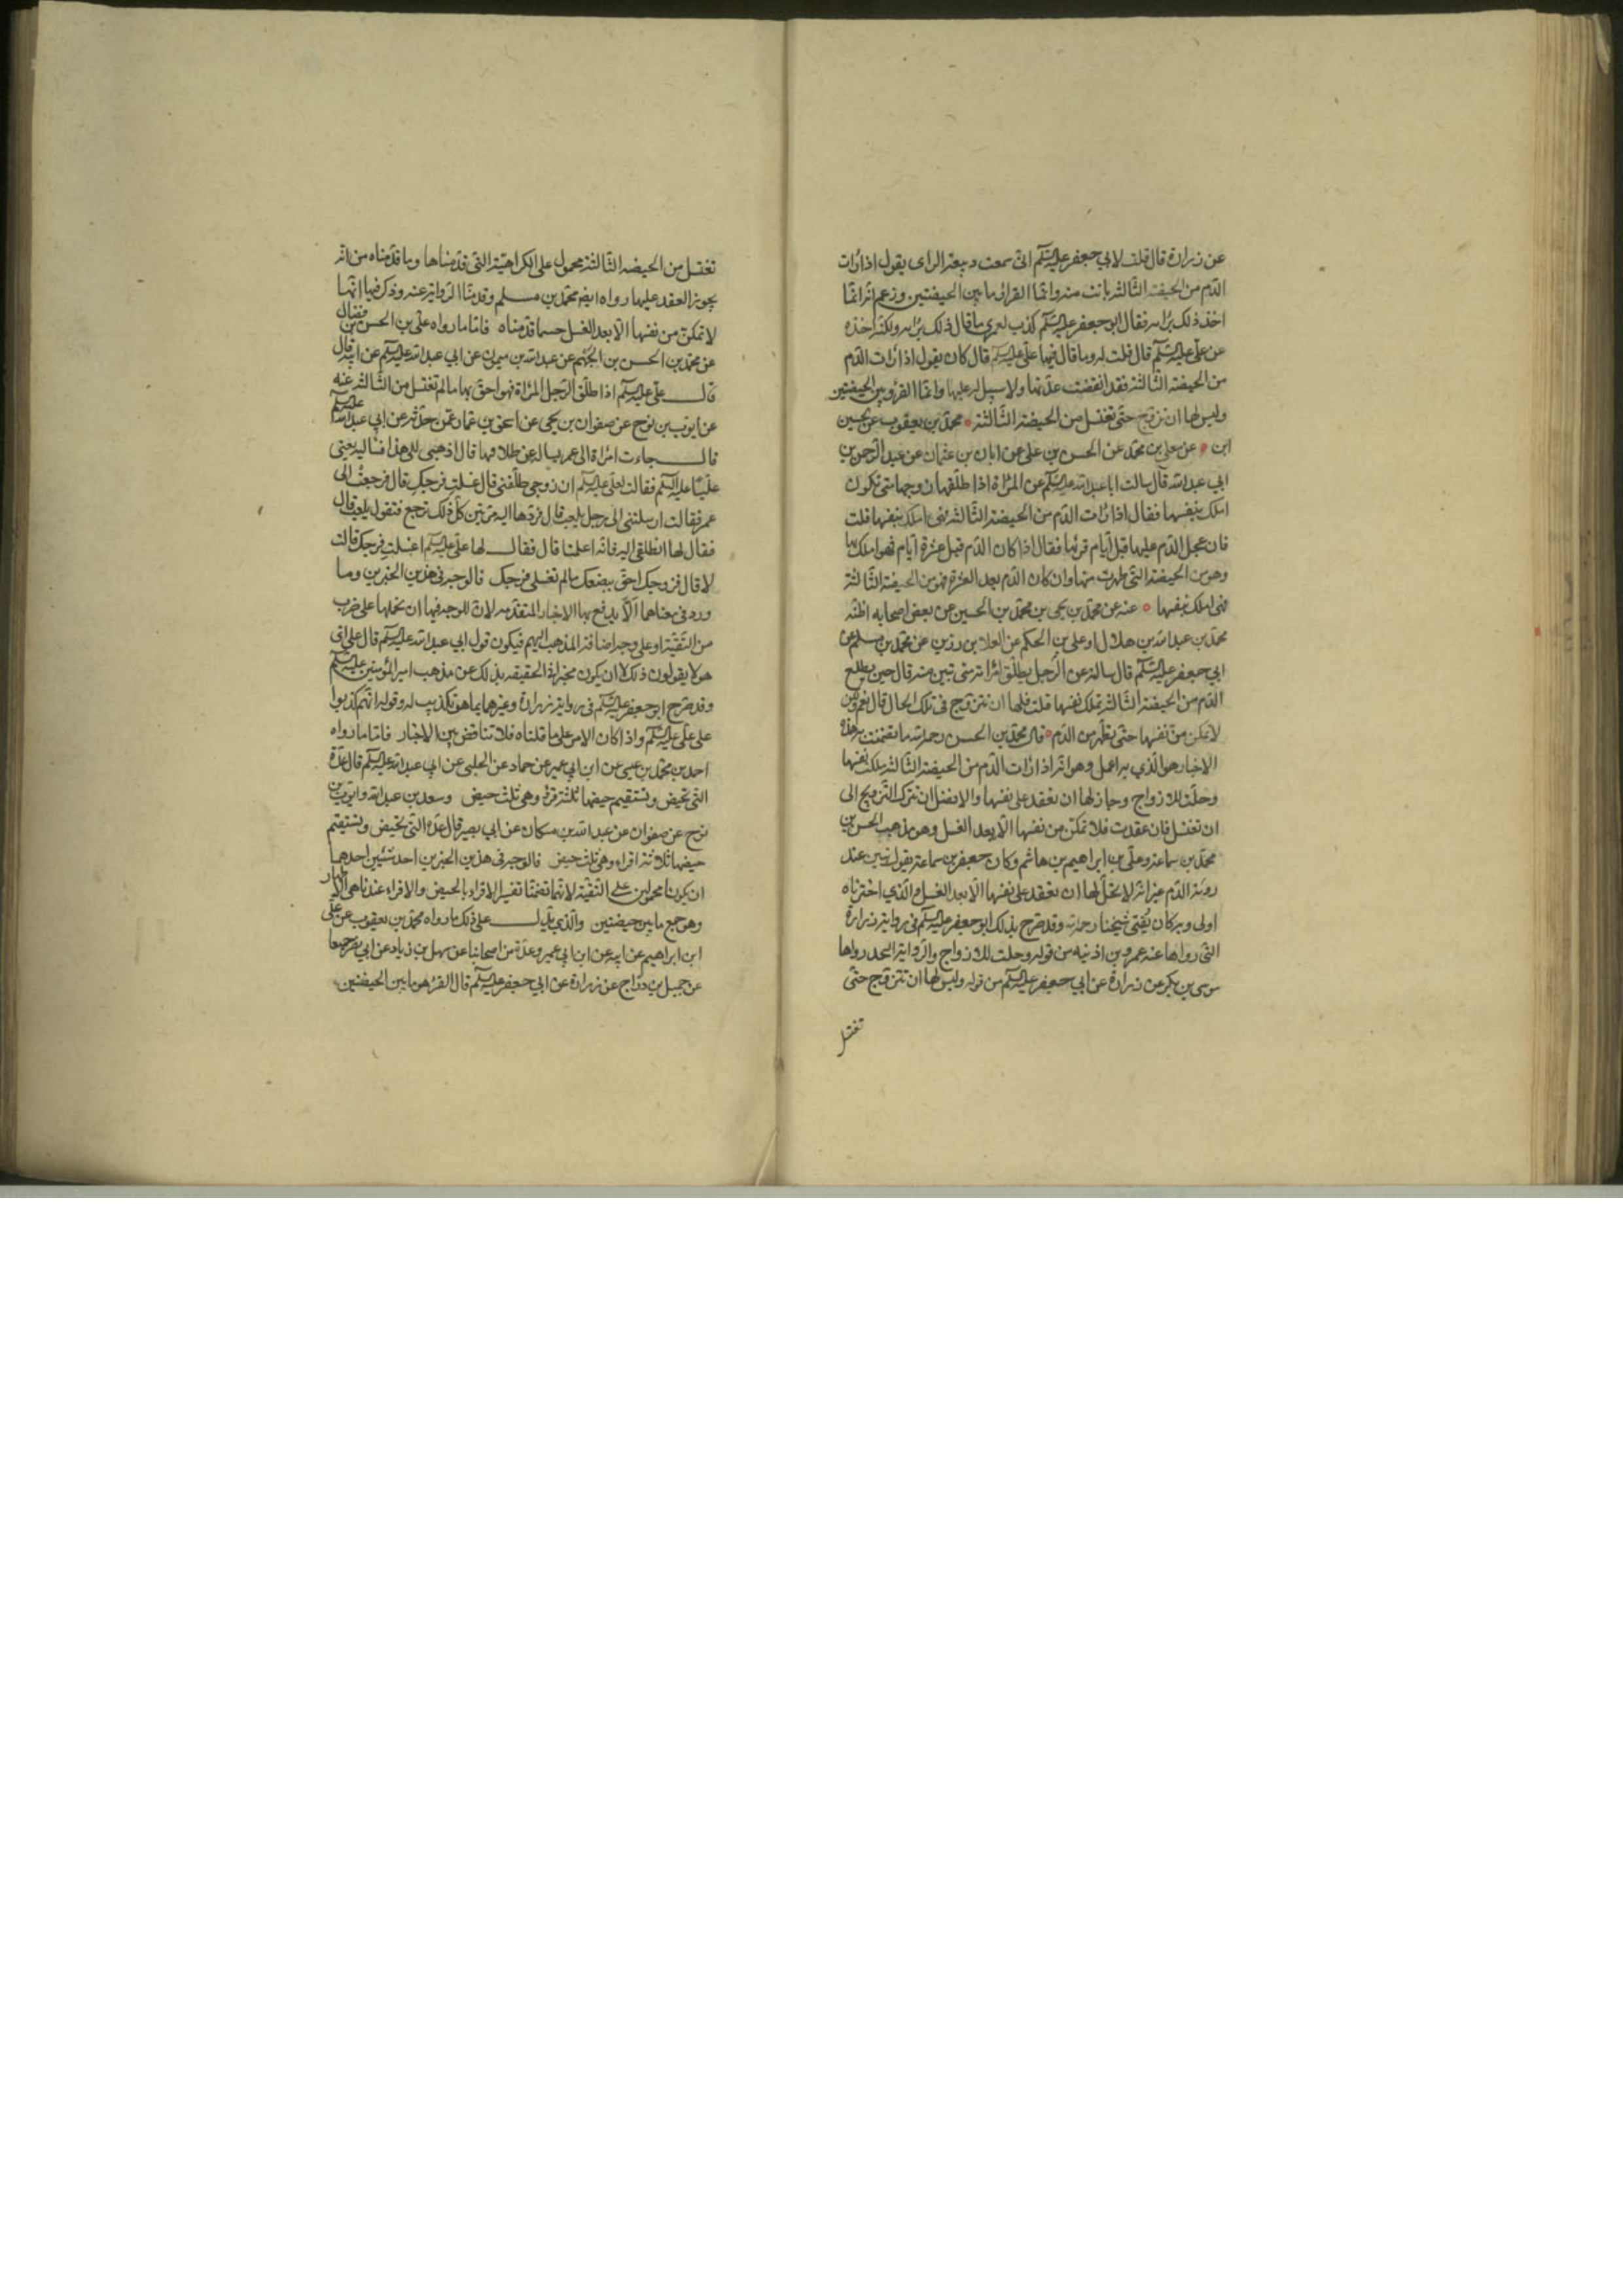 عن زرارة قال قلت لابي جعفر عليه السلم انى سمعت ربيعة الراى يقول اذا رات
الدّم من الحيضة الثالثة بانت منه وانّما القرؤ ما بين الحيضتين وزعم انه انّما
اخذ ذلك براىه فقال ابو جعفر عليه السلم كذب لعمري ما قال ذلك برايه ولكنه اخذه
عن علّى عليه السلم قال قلت له وما قال فيها علّى عليه السلم قال كان يقول اذا رات الدّم
من الحيضة الثّالثة فقد انقضت عدّتها ولا سبيل له عليها وانّما القرؤ بين الحيضتين
وليس لها ان تزوّج حتّى تغتسل من الحيضة الثّالثة محمّد بن يعقوب عن حسين
ابن عن معلى بن محمّد عن الحسن بن على عن ابان بن عثمان عن عبد الرّحمن بن
ابي عبد الله قال سالت ابا عبد الله عليه السلم عن المرأة اذا طلّقها زوجها متى تكون
املك بنفسها فقال اذا رات الدّم من الحيضة الثّالثة فهى املك بنفسها قلت
فان عجل الدّم عليها قبل ايّام قرئها فقال اذا كان الدّم قبل عشرة ايّام فهو املك بها
وهو من الحيضة التّى طهرت منها وان كان الدّم بعد العشرة فهو من الحيضة الثّالثة
فهى املك بنفسها عنه عن محمّد بن يحيى بن محمّد بن الحسين عن بعض اصحابه اظنّه
محمّد بن عبد الله بن هلال او على بن الحكم عن العلا بن رزين عن محمّد بن مسلم عن
ابي جعفر عليه السلم قال سالته عن الرّجل يطلّق امراته متى تبين منه قال حين يطلع
الدّم من الحيضة الثّالثة تملك نفسها قلت فلها ان تتزوّج فى تلك الحال قال نعم ولكن
لا تمكن من نفسها حتّى تطهر من الدّم قال محمّد بن الحسن رحمه الله ما تضمّنت هذه
الاخبار هو الّذي به اعمل وهو انّه اذا رات الدّم من الحيضة الثّالثة ملكت نفسها
وحلّت للازواج وجاز لها ان تعقد على نفسها والافضل ان تترك التّزويج الى
ان تغتسل فان عقدت فلا تمكّن من نفسها الّا بعد الغسل وهو مذهب الحسن بن
محمّد بن سماعة وعلّى بن ابراهيم بن هاشم وكان جعفر بن سماعة يقول تبين عند
روية الدّم غير انّه لا يحلّ لها ان تعقد على نفسها الّا بعد الغسل والّذي اخترناه
اولى وبه كان يُفتى شيخنا رحمه الله وقد صرّح بذلك ابو جعفر عليه السلم فى رواية زرارة
التى رواها عنه عمر بن اذينه من قوله وحلت للازواج والرّواية التى رواها
موسى بن بكر عن زرارة عن ابي جعفر عليه السلم من قوله وليس لها ان تتزوّج حتّى
تغتسل
تغتسل من الحيضه الثّالثة محمول على الكراهيّة التى قدّمناها وما قدّمناه من انّه
يجوز العقد عليها رواه ايضم محمّد بن مسلم وقدمنا الرّواية عنه وذكر فيها انّها
لا تمكّن من نفسها الّا بعد الغسل حسبما قدّمناه فامّا ما رواه على بن الحسن بن فضال
عن محمّد بن الحسن بن الجهم عن عبد الله بن ميمون عن ابي عبد الله عليه السلم عن ابيه قال
قال علّى عليه السلم اذا طلّق الرّجل المرأة فهو احقّ بها ما لم تغتسل من الثّالثة عنه
عن ايّوب بن نوح عن صفوان بن يحيى عن اسحق بن عمار عمّن حدّثه عن ابي عبد الله عليه السلم
قال جاءت امراة الى عمر يساله عن طلاقها قال اذهبى الى هذا فساليه يعنى
عليّا عليه السلم فقالت لعلّى عليه السلم ان زوجى طلّقنى قال غسلت فرجك قال فرجعت الى
عمر فقالت ارسلتنى الى رجل يلعب قال فردّها اليه مرّتين كلّ ذلك ترجع فتقول يلعب قال
فقال لها انطلقى اليه فانّه اعلمنا قال فقال لها علّى عليه السلم اغسلت فرجك قالت
لا قال فزوجك احقّ ببضعك ما لم تغسلى فرجك فالوجه فى هذين الخبرين وما
ورد فى معناهما الّا يدافع بها الاخبار المتقدّمه لانّ الوجه فيها ان نحملها على ضرب
من التّقيّة او على وجه اضافة المذهب اليهم فيكون قول ابي عبد الله عليه السلم قال على انّ
هولا يقولون ذلك لا ان يكون مخبرا فى الحقيقه بذلك عن مذهب امير المؤمنين عليه السلم
وقد صرّح ابو جعفر عليه السلم فى رواية زرارة وغيرها بما هو تكذيب له وقوله انّهم كذبوا
على علّى عليه السلم واذا كان الامر على ما قلناه فلا تناقض بين الاخبار فامّا ما رواه
احمد بن محمّد بن عيسى عن ابن ابي عمير عن حماد عن الحلبى عن ابي عبد الله عليه السلم قال عدّة
التى تحيض وتستقيم حيضها ثلثة قروء وهى ثلث حيض وسعد بن عبد الله وايّوب بن
نوح عن صفوان عن عبد الله بن مسكان عن ابي بصير قال عدّة التى تحيض وتستقيم
حيضها ثلاثة اقراء وهى ثلث حيض فالوجه فى هذين الخبرين احد شيئين احدهما
ان يكونا محمولين على التّقيّة لانّهما تضمّنا تفسير الاقراء بالحيض والاقراء عندنا هى الاطهار
وهو جمع ما بين حيضتين والّذي يدل على ذلك ما رواه محمّد بن يعقوب عن على
ابن ابراهيم عن ابيه عن ابن ابي عمير وعدّة من اصحابنا عن سهل بن زياد عن ابي نصر جميعا
عن جميل بن درّاج عن زرارة عن ابي جعفر عليه السلم قال القرء هو ما بين الحيضتين